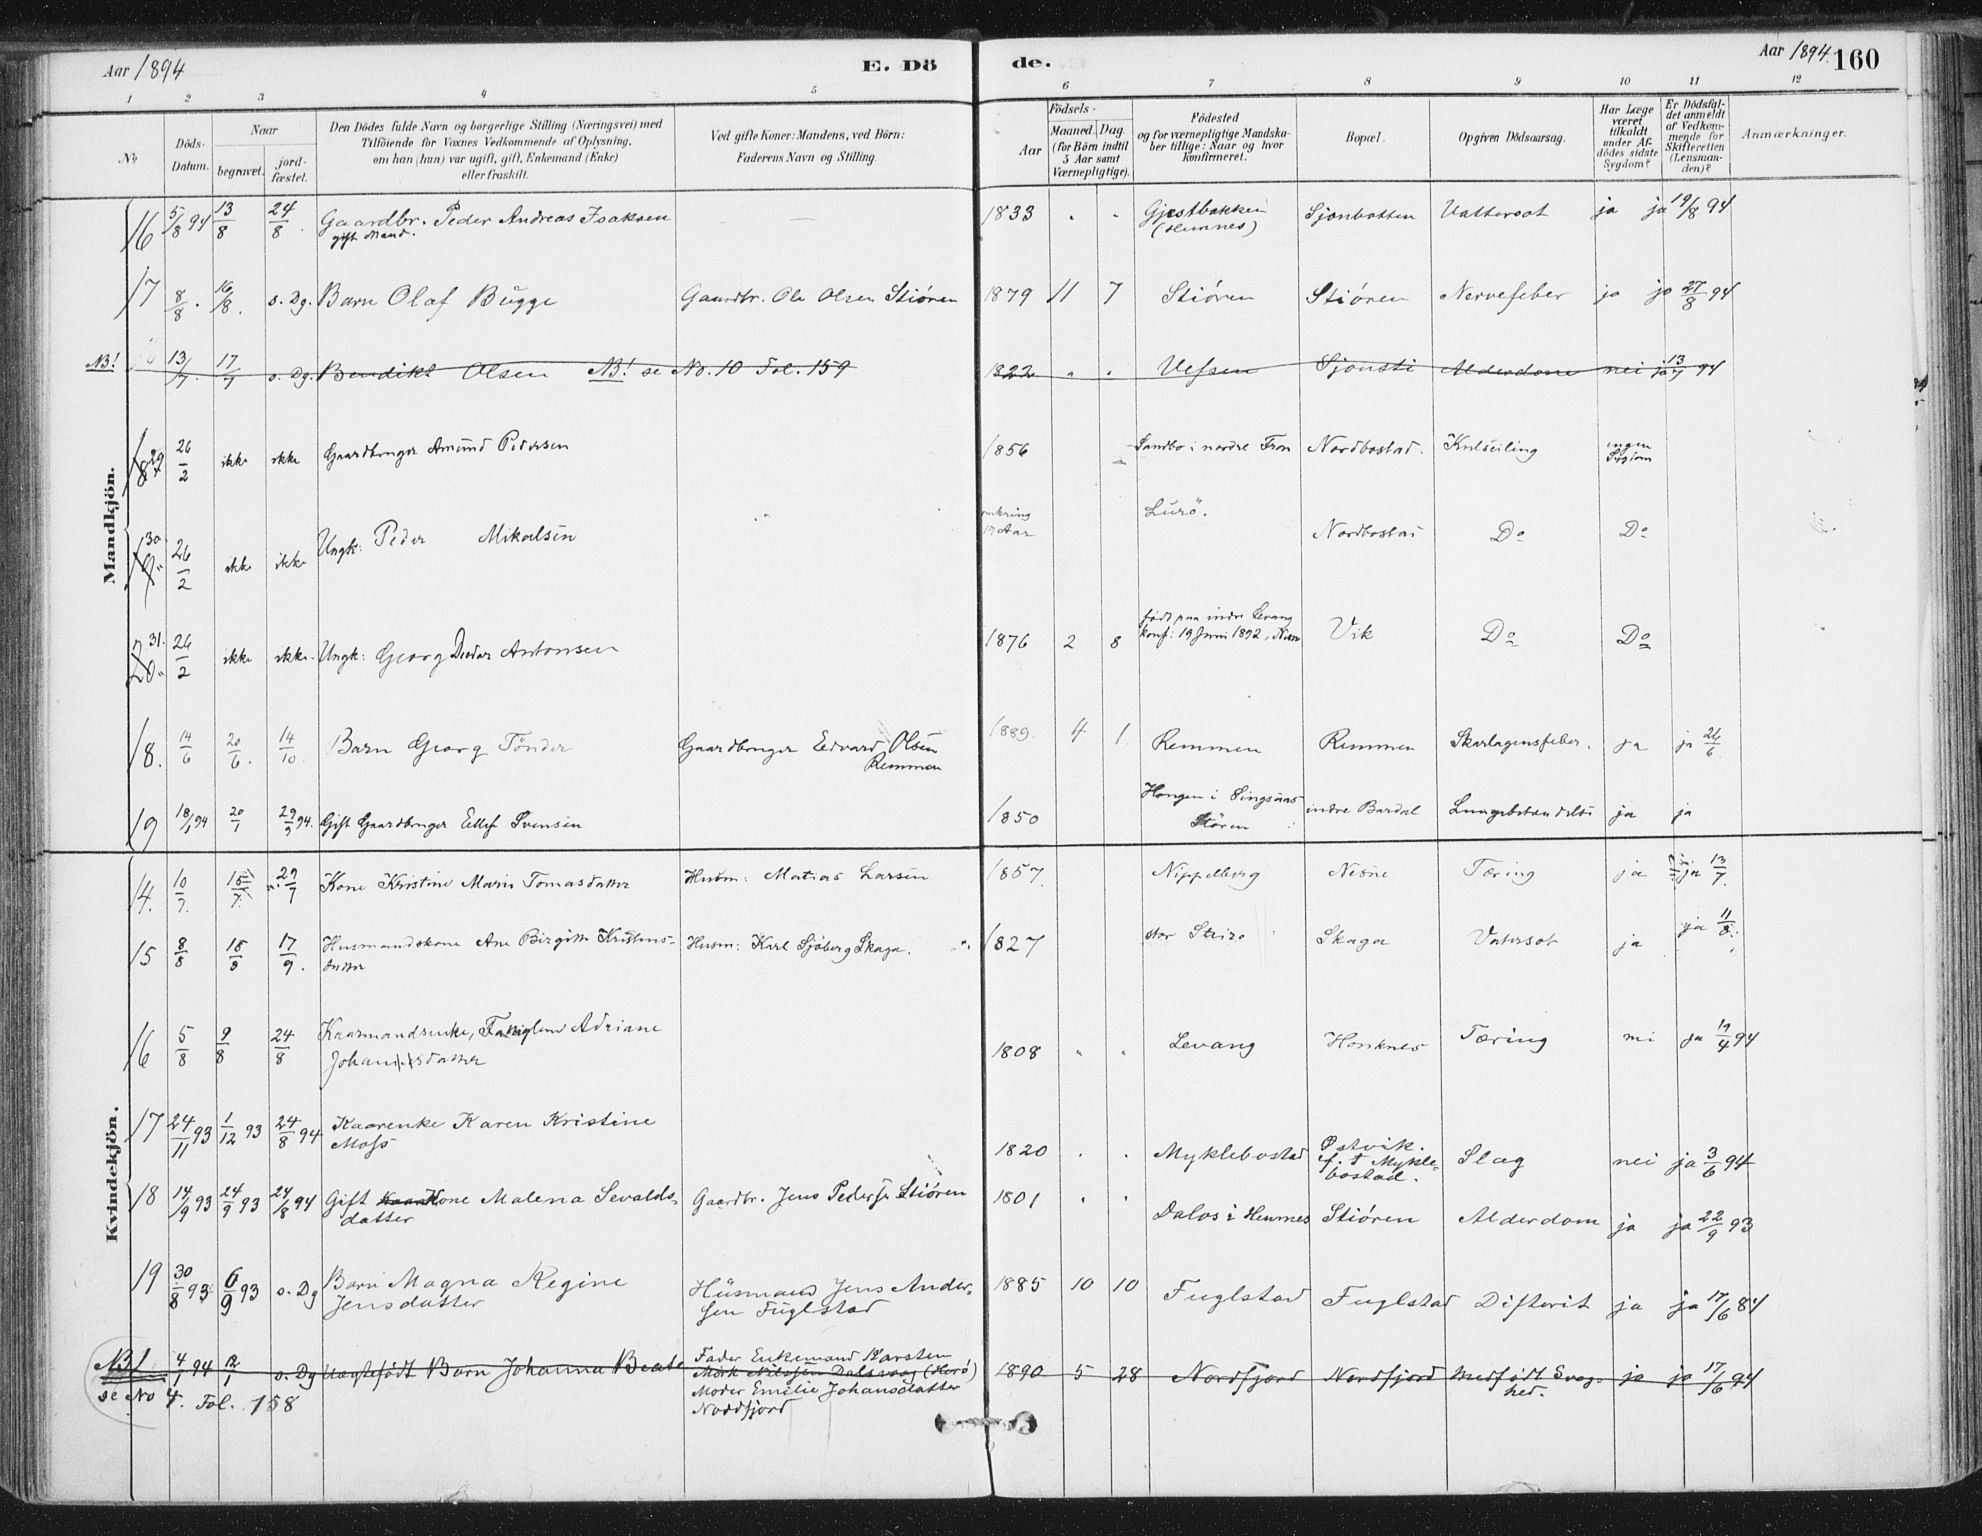 Aar 1894
E. Dö
de.
Aar 1894.
160
1 2 3 4 5 6 7 8 9 10 11 12
No
Döds-Datum.
Naar
begravet.
jord-fæstet.
Den Dödes fulde Navn og borgerlige Stilling (Næringsvei) med
Tilföiende for Voxnes Vedkommende af Oplysning,
om han (hun) var ugift, gift, Enkemand (Enke)
eller fraskilt.
Ved gifte Koner: Mandens, ved Börn:
Faderens Navn og Stilling.
Födsels-
Aar
Maaned. Dag.
(for Börn indtil
5 Aar samt
Værnepligtige).
Födested
og for værnepligtige Mandska-
ber tillige: Naar og hvor
konfirmeret.
Bopæl.
Opgiven Dödsaarsag.
Har Læge
været
tilkaldt
under Af-
dödes sidste
Sygdom?
Er Dödsfal-
det anmeldt
af Vedkom-
mende for
Skifteretten
(Lensman-
den)?
Anmærkninger.
Mandkjön.
16 5/8 94 13/8 24/8. Gaardbr. Peder Andreas Isaksen 1833 " " Gjestbakken Sjonbotten Vattersot ja ja 19/8 94
gift Mand. (Hemnes)
17 8/8. 16/8. s. Dg. Barn Olaf Bugge Gaardbr. Ole Olsen Stiören 1879 11 7 Stiören Stiören Nervefeber ja ja 27/8 94
NB! 13/7. 17/7 s. Dg. Bendikt Olsen NB! se No. 10 Fol. 159 1822 " " Vefsen Sjonsti Alderdom nei ja 13/7 94
29 26/2 ikke ikke Gaardbruger Amund Pedersen 1856 Sandbo i nordre Fron Nordbostad. Kulseiling ingen Sygdom
30 26/2 ikke ikke Ungk: Peder Mikalsen omkring 19 Aar Lurö. Nordbostad Do Do
31. 26/2 ikke ikke. Ungk: Georg Peder Antonsen 1876 2 8 født paa indre Levang Vik Do Do
konf: 19 Juni 1892,
18. 14/6 20/6. 14/10 Barn Georg Tönder Gaardbruger Edvard Olsen 1889. 4 1. Remmen Remmen Skarlagensfeber. ja ja 26/6
Remmen
19 18/1 94 20/1 29/9 94. Gift Gaardbruger Ellef Svensen 1850 Haugen i Singsaas indre Bardal Lungebetændelse ja ja
Stören
Kvindekjön.
14. 10/7. 15/7. 29/7 Kone Kristine Marie Tomasdatter Husm: Matias Larsen 1857. Nippelberg Nesne Tæring ja ja 13/7.
15 8/8 15/8 17/9. Husmandskone Ane Birgitte Kristens- Husm: Karl Sjöberg Skaga. 1827 Skaga Vatersot ja ja 11/8.
datter
16 5/8 9/8 24/8 Kaarmandsenke, Adriane 1808 " " Levang Honknes Tæring nei ja 19/4 94
Johannesdatter
17 24/11 93 1/12 93 24/8 94 Kaarenke Karen Kristine 1820 " " Myklebostad Østvik. Slag nei ja 3/6 94
Moss f. t Mykle-
bostad.
18 14/9 93 24/9 93 24/8 94 Gift Kaar Kone Malena Sevalds- Gaardbr. Jens Peders. Stiören 1801 " " Dalos i Hemnes Stiören Alderdom ja ja 22/9 93
datter
19 30/8 93 6/9 93 s. Dg Barn Magna Regine Husmand Jens Ander- 1885 10 10 Fuglstad Fuglstad Difterit ja ja 17/6 84
Jensdatter sen Fuglstad
NB! 4/1 94 12/1 s. Dg Uægtefödt Barn Johanna Beate Fader Enkemand Karsten 1890 5 28 Nordfjord Nordfjord Medfödt Svag- ja ja 17/6 94
Mörk Nilssen Dalsvaag (Herö) hed.
se No 4. Fol. 158 Moder Emelie Johansdatter
Nordfjord